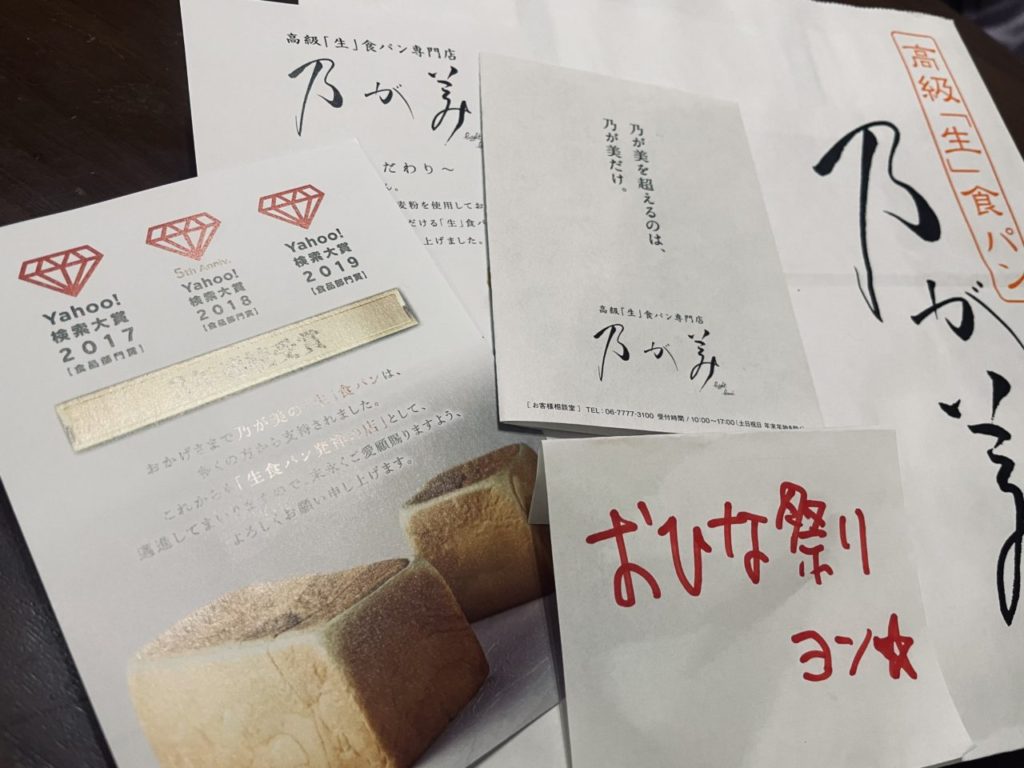 高級「生」食パン専門店
乃が美
だわり〜
ん。
麦粉を使用してお
だける「生」食パ
上げました。
Yahoo!
検索大賞
2017
[食品部門賞]
5th Anniv.
Yahoo!
検索大賞
2018
[食品部門賞]
Yahoo!
検索大賞
2019
[食品部門賞]
受賞
おかげさまで乃が美の「生」食パンは、
多くの方から支持されました。
これからも「生食パン発祥の店」として、
邁進してまいりますので、末永くご愛顧賜りますよう、
よろしくお願い申し上げます。
乃が美を超えるのは、
乃が美だけ。
高級「生」食パン専門店
乃が美
[お客様相談室] TEL:06-7777-3100 受付時間/10:00〜17:00(土日祝日
高級「生」食パン
乃が美
おひな祭り
ヨン☆